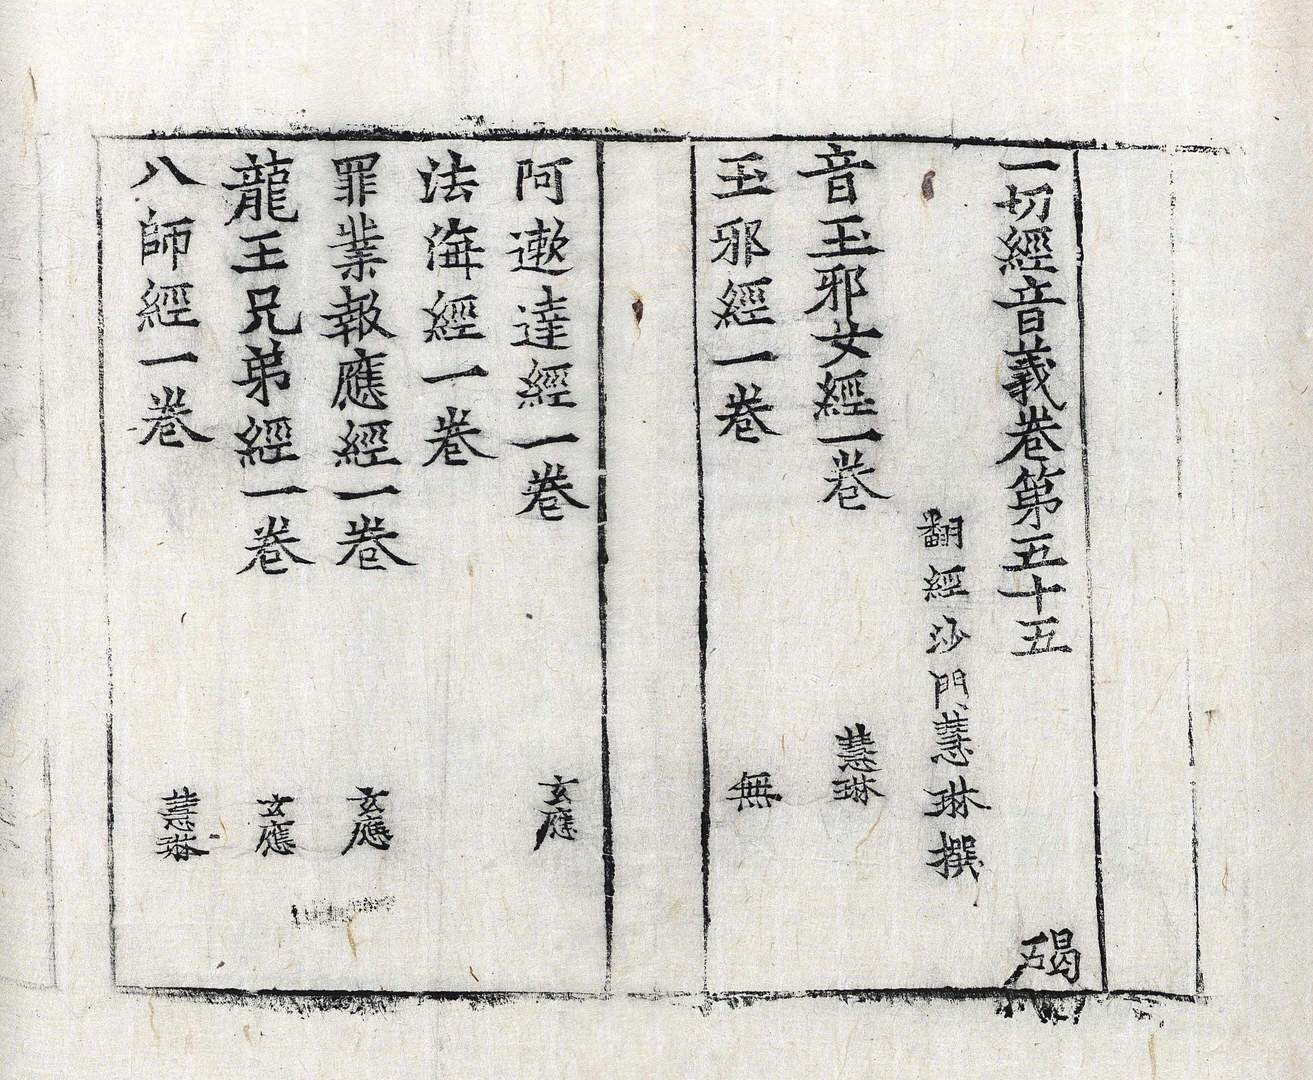 一切經音義卷第五十五 碣
翻經沙門慧琳撰
音玉邪女經一卷 慧琳
玉邪經一卷 無
阿遬達經一卷 玄應
法海經一卷
罪業報應經一卷 玄應
龍王兄弟經一卷 玄應
八師經一卷 慧琳